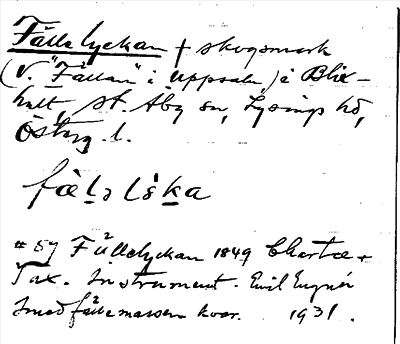 Fällelyckan + skogsmark
(v. "Fällan" i uppsatsn) å Blix-
hult, St. Åby sn, Lysings hd,
Österg. l.
fæ̀lə ls̀ka
# 57 Fällelyckan 1849 Charta +
Tax. Instrument. Emil Engnér
Smedfällemassen kvar. 1931.